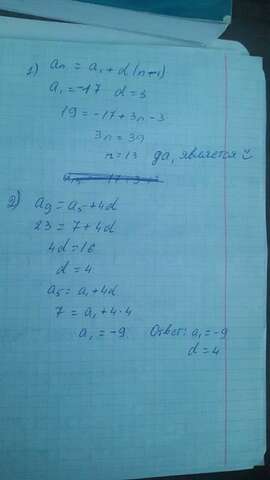 1) an = a1 + d(n-1)
a1 = -17 d = 3
19 = -17 + 3n - 3
3n = 39
n = 13 да, является
2) a9 = a5 + 4d
23 = 7 + 4d
4d = 16
d = 4
a5 = a1 + 4d
7 = a1 + 4·4
a1 = -9 Ответ: a1 = -9
d = 4